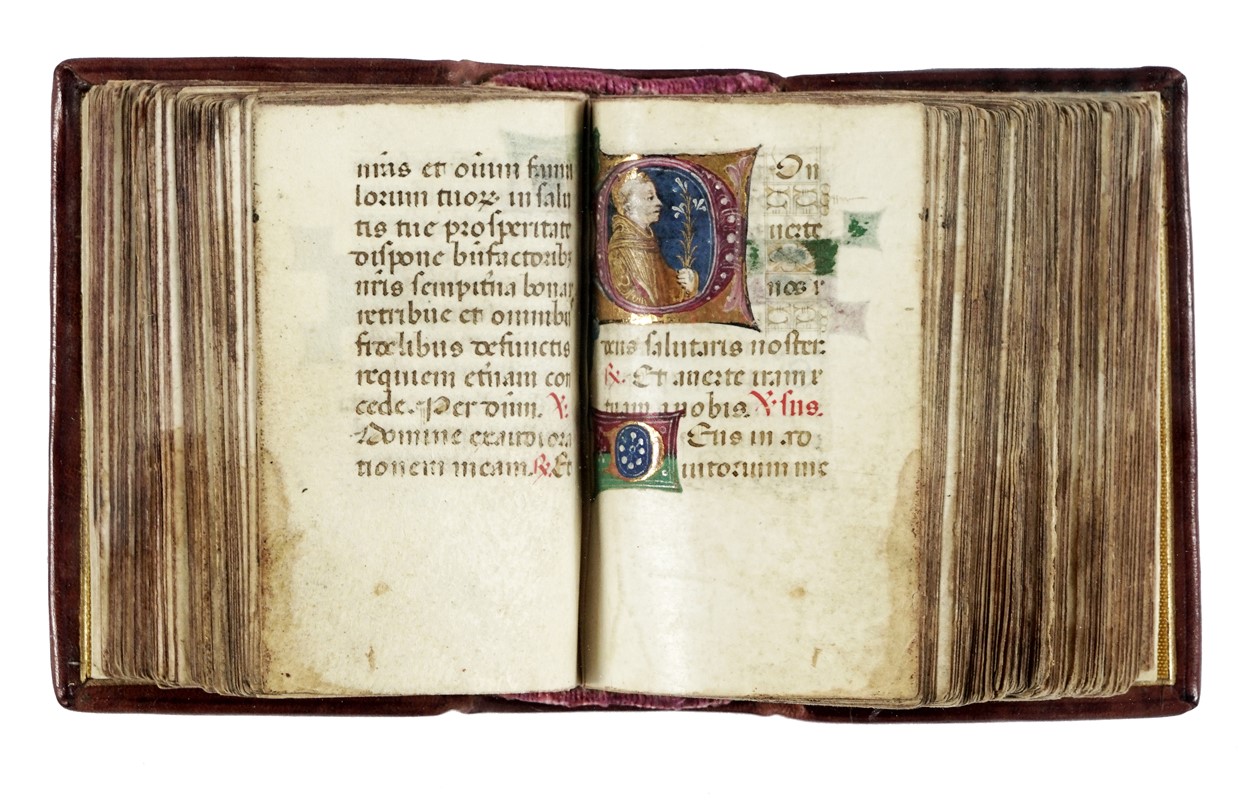 nr̄is et oīum famu
lorum tuoꝝ in salu
tis tue prosperitate
dispone bn̄factoribꝫ
nr̄is sempit̄na bona
retribue et omnibꝰ
fidelibus defunctis
requiem et̄nam con
cede. Per dn̄m. ℣.
Domine exaudi ora
tionem meam. ℟. Et
Con
uerte
nos
deus salutaris noster.
℟. Et auerte iram
tuam a nobis. ℣sus.
Deus in adiutorium me